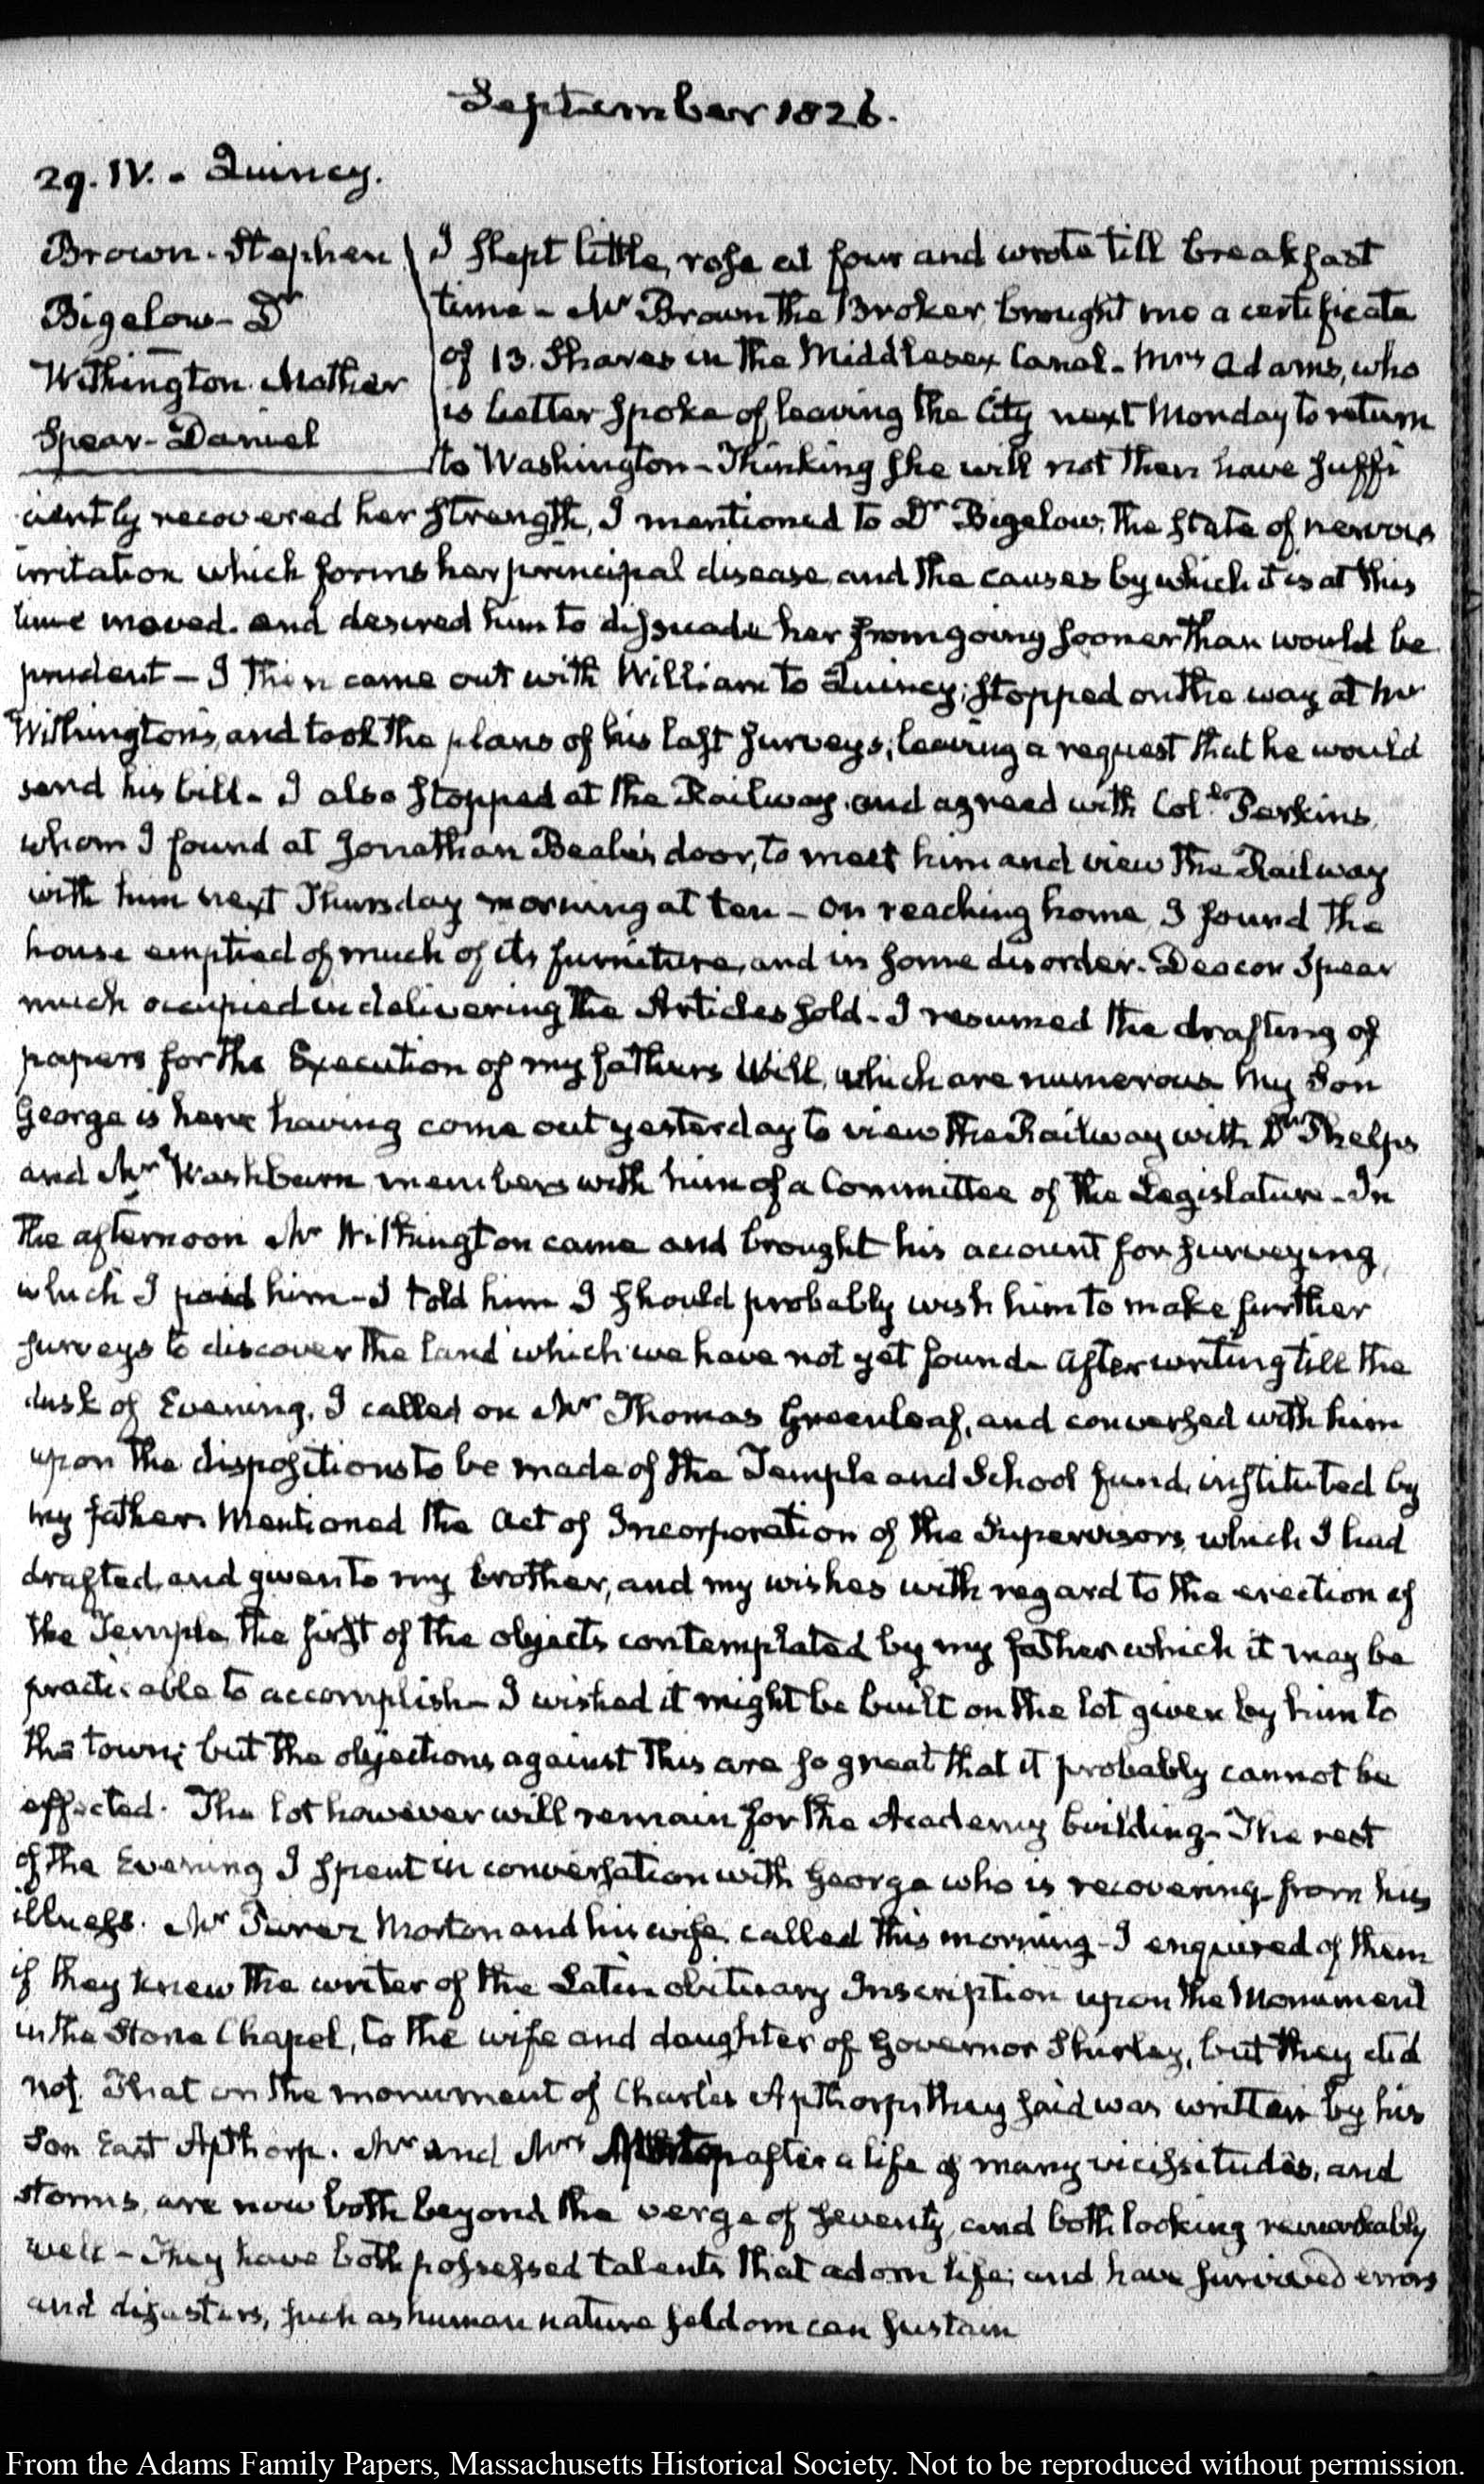 September 1826.
29. IV. - Quincy.
Brown. Stephen
Bigelow - Dr
Withington. Mather
Spear - Daniel
I slept little, rose at four and wrote till breakfast
time - Mr Brown the Broker, brought me a certificate
of 13. Shares in the Middlesex Canal - Mrs Adams, who
is better spoke of leaving the City next Monday to return
to Washington - Thinking she will not then have suffi
ciently recovered her strength, I mentioned to Dr Bigelow, the state of nervous
irritation which forms her principal disease, and the causes by which it is at this
time moved. and desired him to dissuade her from going sooner than would be
prudent - I then came out with William to Quincy; stopped on the way at Mr
Withington's, and took the plans of his last surveys; leaving a request that he would
send his bill - I also stopped at the Railway, and agreed with Col.l Perkins,
whom I found at Jonathan Beale's door, to meet him and view the Railway
with him next Thursday morning at ten - On reaching home, I found the
house emptied of much of its furniture, and in some disorder. Deacon Spear
much occupied in delivering the Articles sold - I resumed the drafting of
papers for the Execution of my fathers Will, which are numerous. My Son
George is here having come out yesterday to view the Railway with Dr Phelps
and Mr Washburn members with him of a Committee of the Legislature - In
the afternoon Mr Withington came and brought his account for surveying,
which I paid him - I told him I should probably wish him to make further
surveys to discover the land which we have not yet found - After writing till the
dusk of Evening, I called on Mr Thomas Greenleaf, and conversed with him
upon the dispositions to be made of the Temple and School fund, instituted by
my father. Mentioned the Act of Incorporation of the Supervisors, which I had
drafted, and given to my brother, and my wishes with regard to the erection of
the Temple, the first of the objects contemplated by my father which it may be
practicable to accomplish - I wished it might be built on the lot given by him to
the town; but the objections against this are so great that it probably cannot be
effected. The lot however will remain for the Academy building - The rest
of the Evening I spent in conversation with George who is recovering from his
illness. Mr Perez Morton and his wife, called this morning - I enquired of them
if they knew the writer of the Latin obituary Inscription upon the Monument
in the Stone Chapel, to the wife and daughter of Governor Shirley, but they did
not. That on the monument of Charles Apthorp, they said was written by his
Son East Apthorp. Mr and Mrs Morton after a life of many vicissitudes, and
storms, are now both beyond the verge of seventy, and both looking remarkably
well - They have both possessed talents that adorn life; and have survived errors
and disasters, such as human nature seldom can sustain
From the Adams Family Papers, Massachusetts Historical Society. Not to be reproduced without permission.